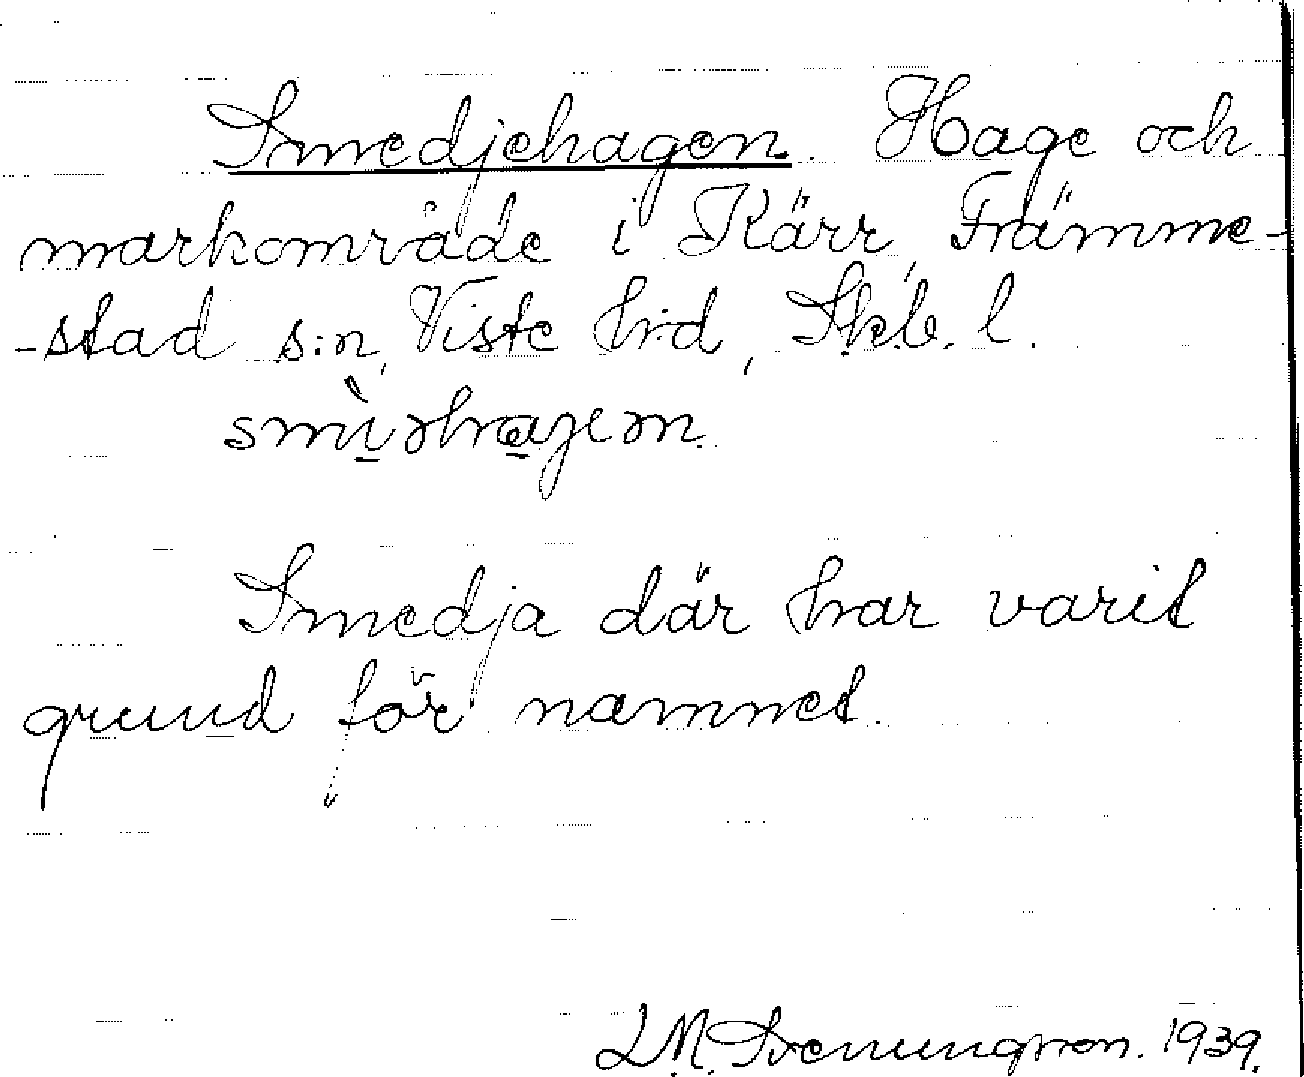 Smedjehagen. Hage och
markområde i Kärr, Främme-
-stad s:n, Viste h:d, Skb. l.
Smedja där har varit
grund för namnet.
L.M. Svenungsson. 1939.